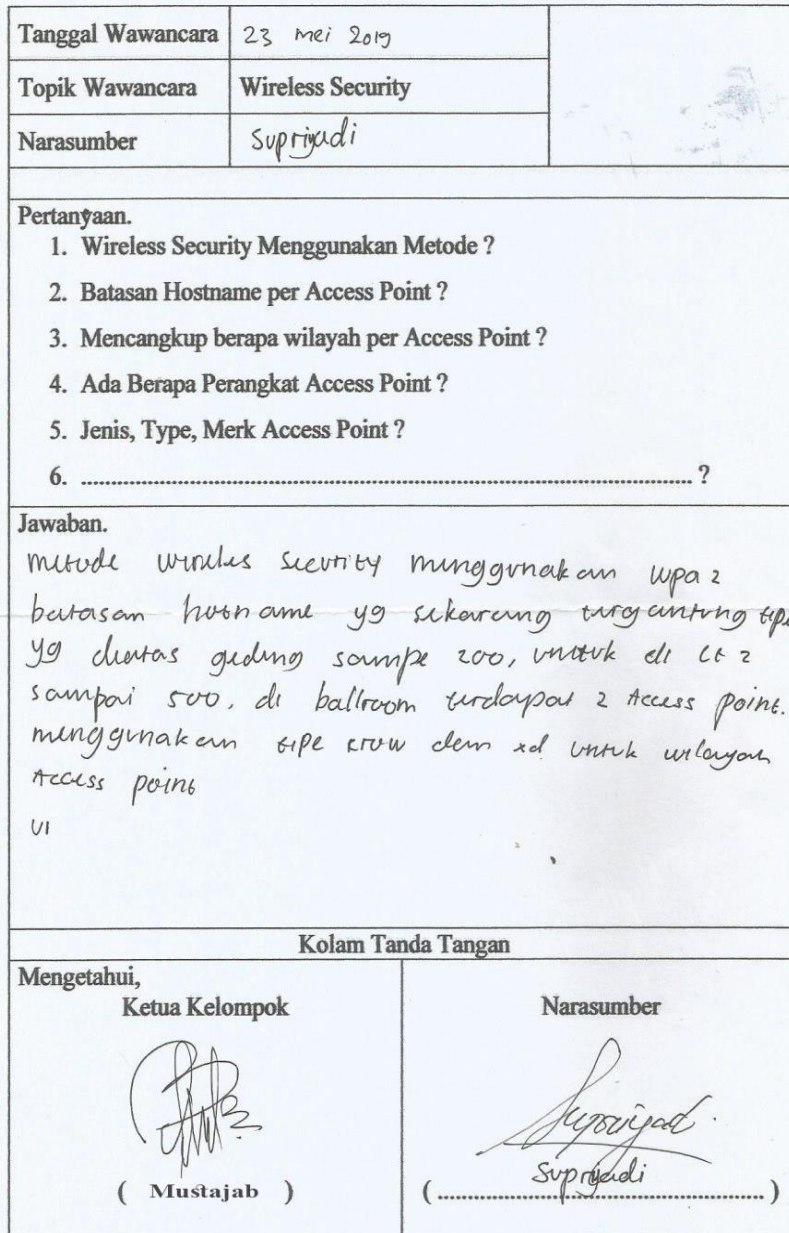 Tanggal Wawancara 23 mei 2019
Topik Wawancara Wireless Security
Narasumber Supriyadi
Pertanyaan.
1. Wireless Security Menggunakan Metode ?
2. Batasan Hostname per Access Point ?
3. Mencangkup berapa wilayah per Access Point ?
4. Ada Berapa Perangkat Access Point ?
5. Jenis, Type, Merk Access Point ?
6. ........................................................................................ ?
Jawaban.
metode wireles security menggunakan wpa 2
batasan hosname yg sekarang tergantung tipe
yg diatas gedung sampe 200, untuk di Lt 2
sampai 500, di ballroom terdapat 2 Access point.
menggunakan tipe dan xd untuk wilayah
Access point
Kolam Tanda Tangan
Mengetahui,
Ketua Kelompok Narasumber
Supriyadi
( Mustajab ) (................................................................)